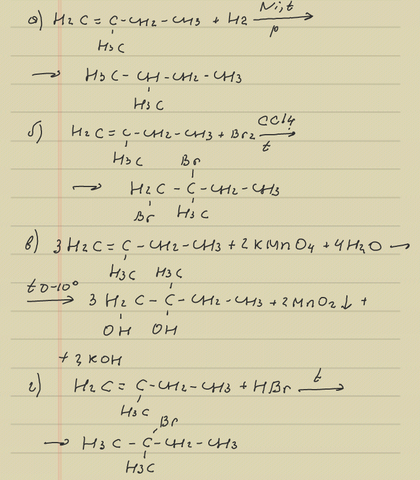 а) H2C = C - CH2 - CH3 + H2 Ni, t
p
H3C
→ H3C - CH - CH2 - CH3
H3C
б) H2C = C - CH2 - CH3 + Br2 CCl4
t
H3C Br
→ H2C - C - CH2 - CH3
Br H3C
в) 3H2C = C - CH2 - CH3 + 2KMnO4 + 4H2O →
H3C H3C
t 0-10° → 3H2C - C - CH2 - CH3 + 2MnO2↓ +
OH OH
+ 2KOH
г) H2C = C - CH2 - CH3 + HBr t →
H3C
Br
→ H3C - C - CH2 - CH3
H3C